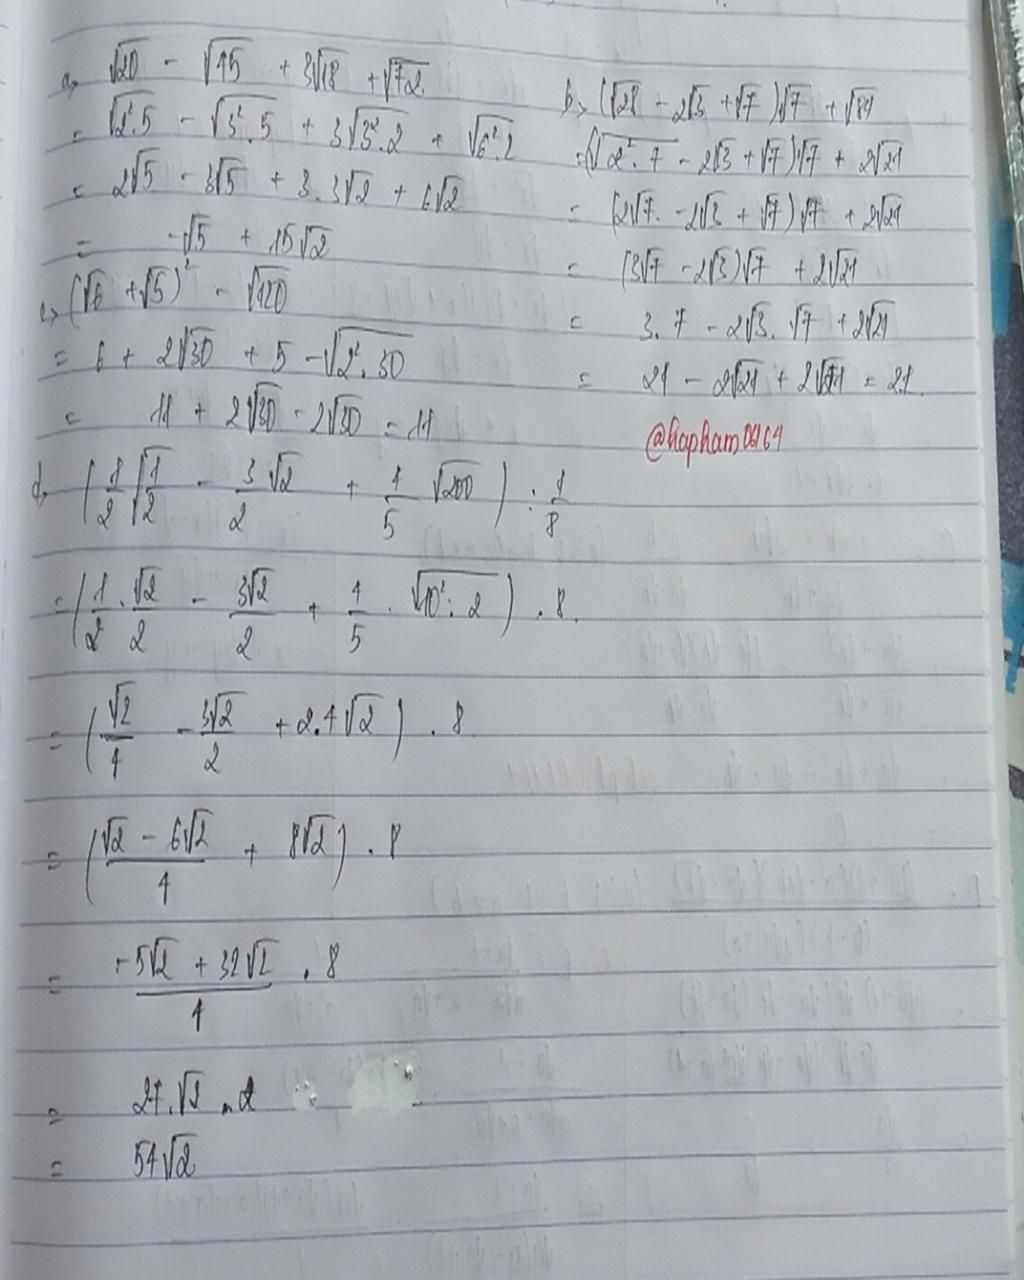 a, √20 - √45 + 3√18 + √72
= √2².5 - √3².5 + 3√3².2 + √6².2
= 2√5 - 3√5 + 3.3√2 + 6√2
= -√5 + 15√2
b, (√28 - 2√3 + √7)√7 + √84
=(√2².7 - 2√3 + √7)√7 + 2√21
= (2√7. - 2√3 + √7)√7 + 2√21
= (3√7 - 2√3)√7 + 2√21
= 3.7 - 2√3.√7 + 2√21
= 21 - 2√21 + 2√21 = 21.
@hapham06164
c, (√6 + √5)² - √120
= 6 + 2√30 + 5 - √2².30
= 11 + 2√30 - 2√30 = 11
d, (1/2 √1/2 - 3/2 √2 + 4/5 √200) : 1/8
= (1/2 . √2/2 - 3√2/2 + 4/5 . √10².2) . 8.
= (√2/4 - 3√2/2 + 2.4√2) . 8
= (√2 - 6√2/4 + 8√2) . 8
= -5√2 + 32√2/4 . 8
= 27.√2 . 2
= 54√2